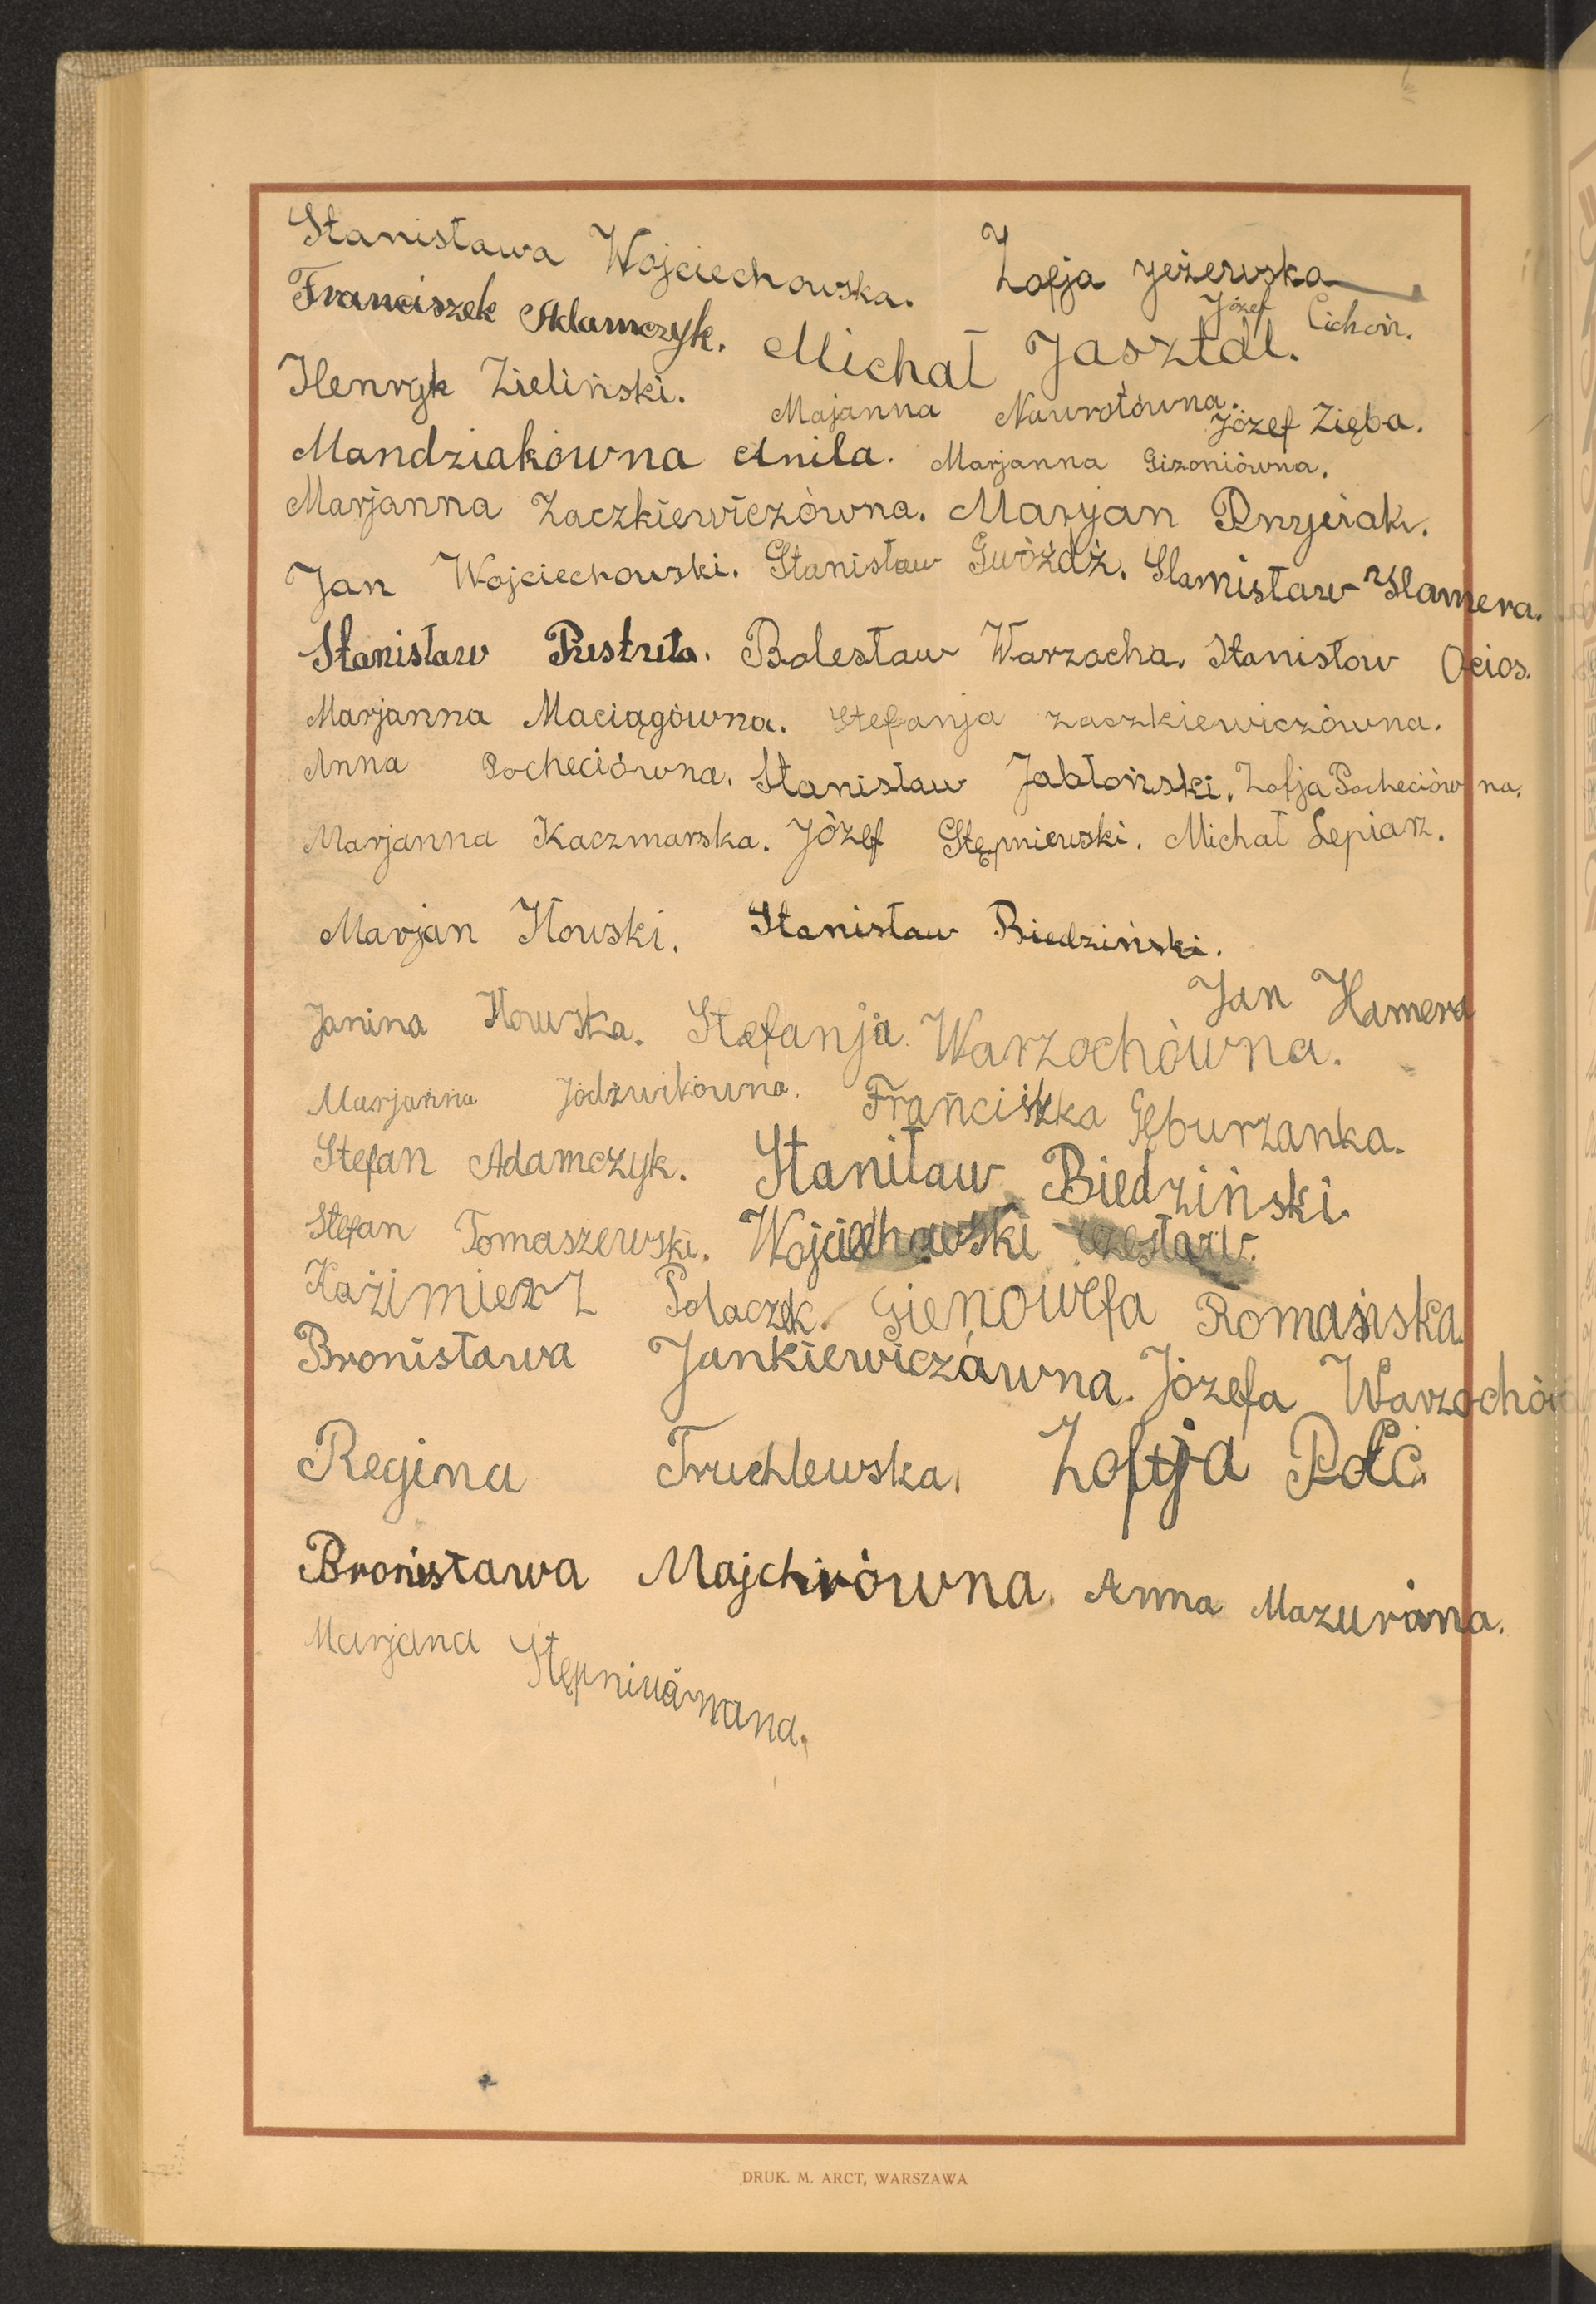 Stanisława Wojciechowska. Zofja Jeżewska
Franciszek Adamczyk. Michał Jasztal. Józef Cichoń.
Henryk Zieliński. Majanna Nawrotówna. Józef Zięba.
Mandziakówna Anila. Marjanna Gizoniówna.
Marjanna Zaczkiewiczówna. Maryan
Jan Wojciechowski. Stanisław Gwóźdź. Stanisław Hamera.
Stanisław Pustuła. Bolesław Warzocha. Stanisław Ocios.
Marjanna Maciągówna. Stefanja Zaczkiewiczówna.
Anna Pocheciówna. Stanisław Jabłoński. Zofja Pocheciówna.
Marjanna Kaczmarska. Józef Stępniewski. Michał Lepiarz.
Marjan Iłowski. Stanisław Biedziński.
Jan Hamera
Janina Iłowska. Stefanja Warzochówna.
Marjanna Jódzwikówna. Franciszka Gęburzanka.
Stefan Adamczyk. Staniław Biedziński.
Stefan Tomaszewski. Wojciechowski Czesław.
Kazimierz Polaczek. Gienowefa Romańska.
Bronisława Jankiewiczówna. Józefa Warzochów
Regina Truchlewska. Zofja
Bronisława Majchrówna. Anna Mazurówna.
Marjana
DRUK. M. ARCT, WARSZAWA